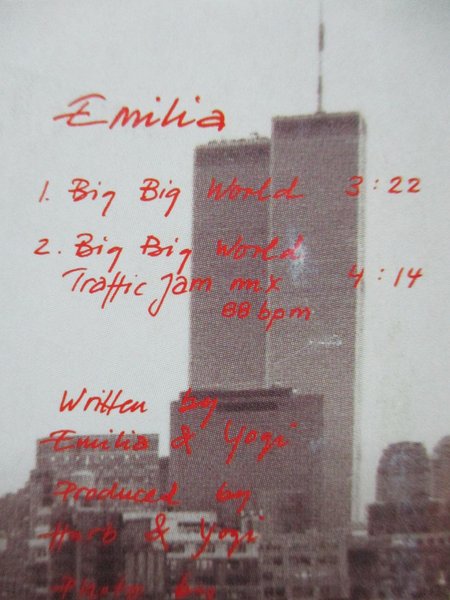 Emilia
1. Big Big World 3:22
2. Big Big World
Traffic Jam mix 4:14
88 bpm
Written by
Emilia & Yogi
Produced by
Harb & Yogi
Photo by